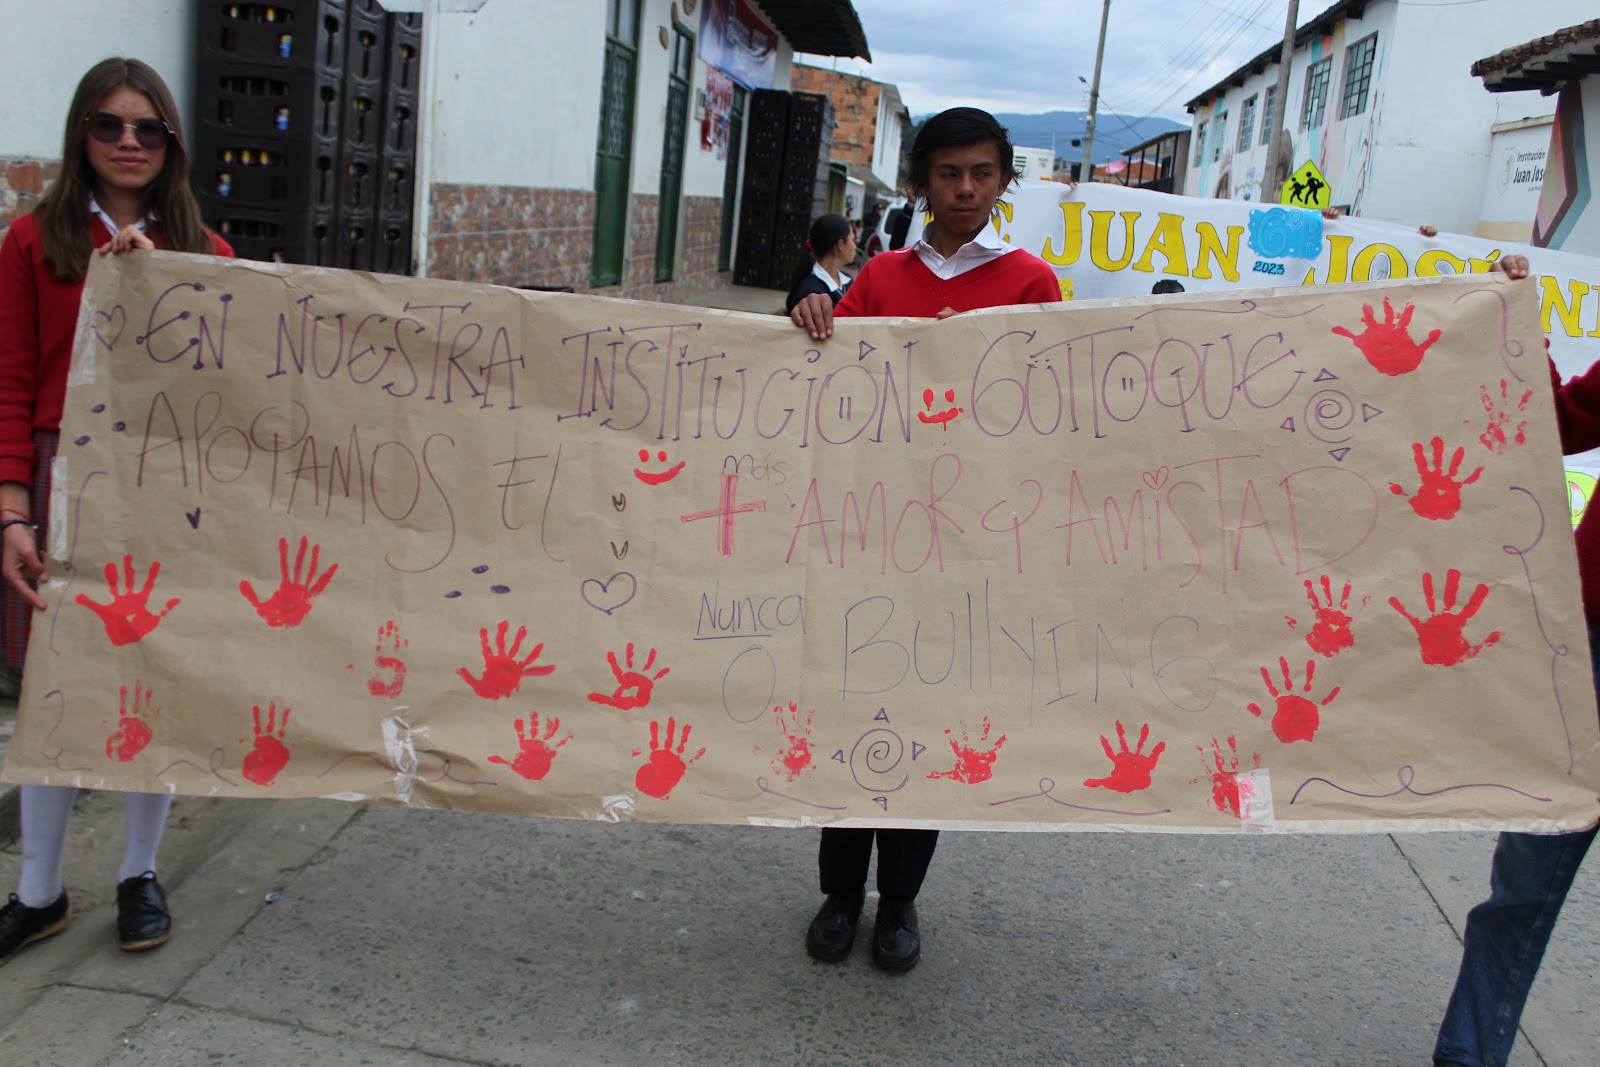 EN NUESTRA INSTITUCIÓN GÜITOQUE
APOYAMOS EL + más AMOR Y AMISTAD
Nunca
O BullYING
JUAN JOSÉ
6ºB
2023
Institución
Juan José